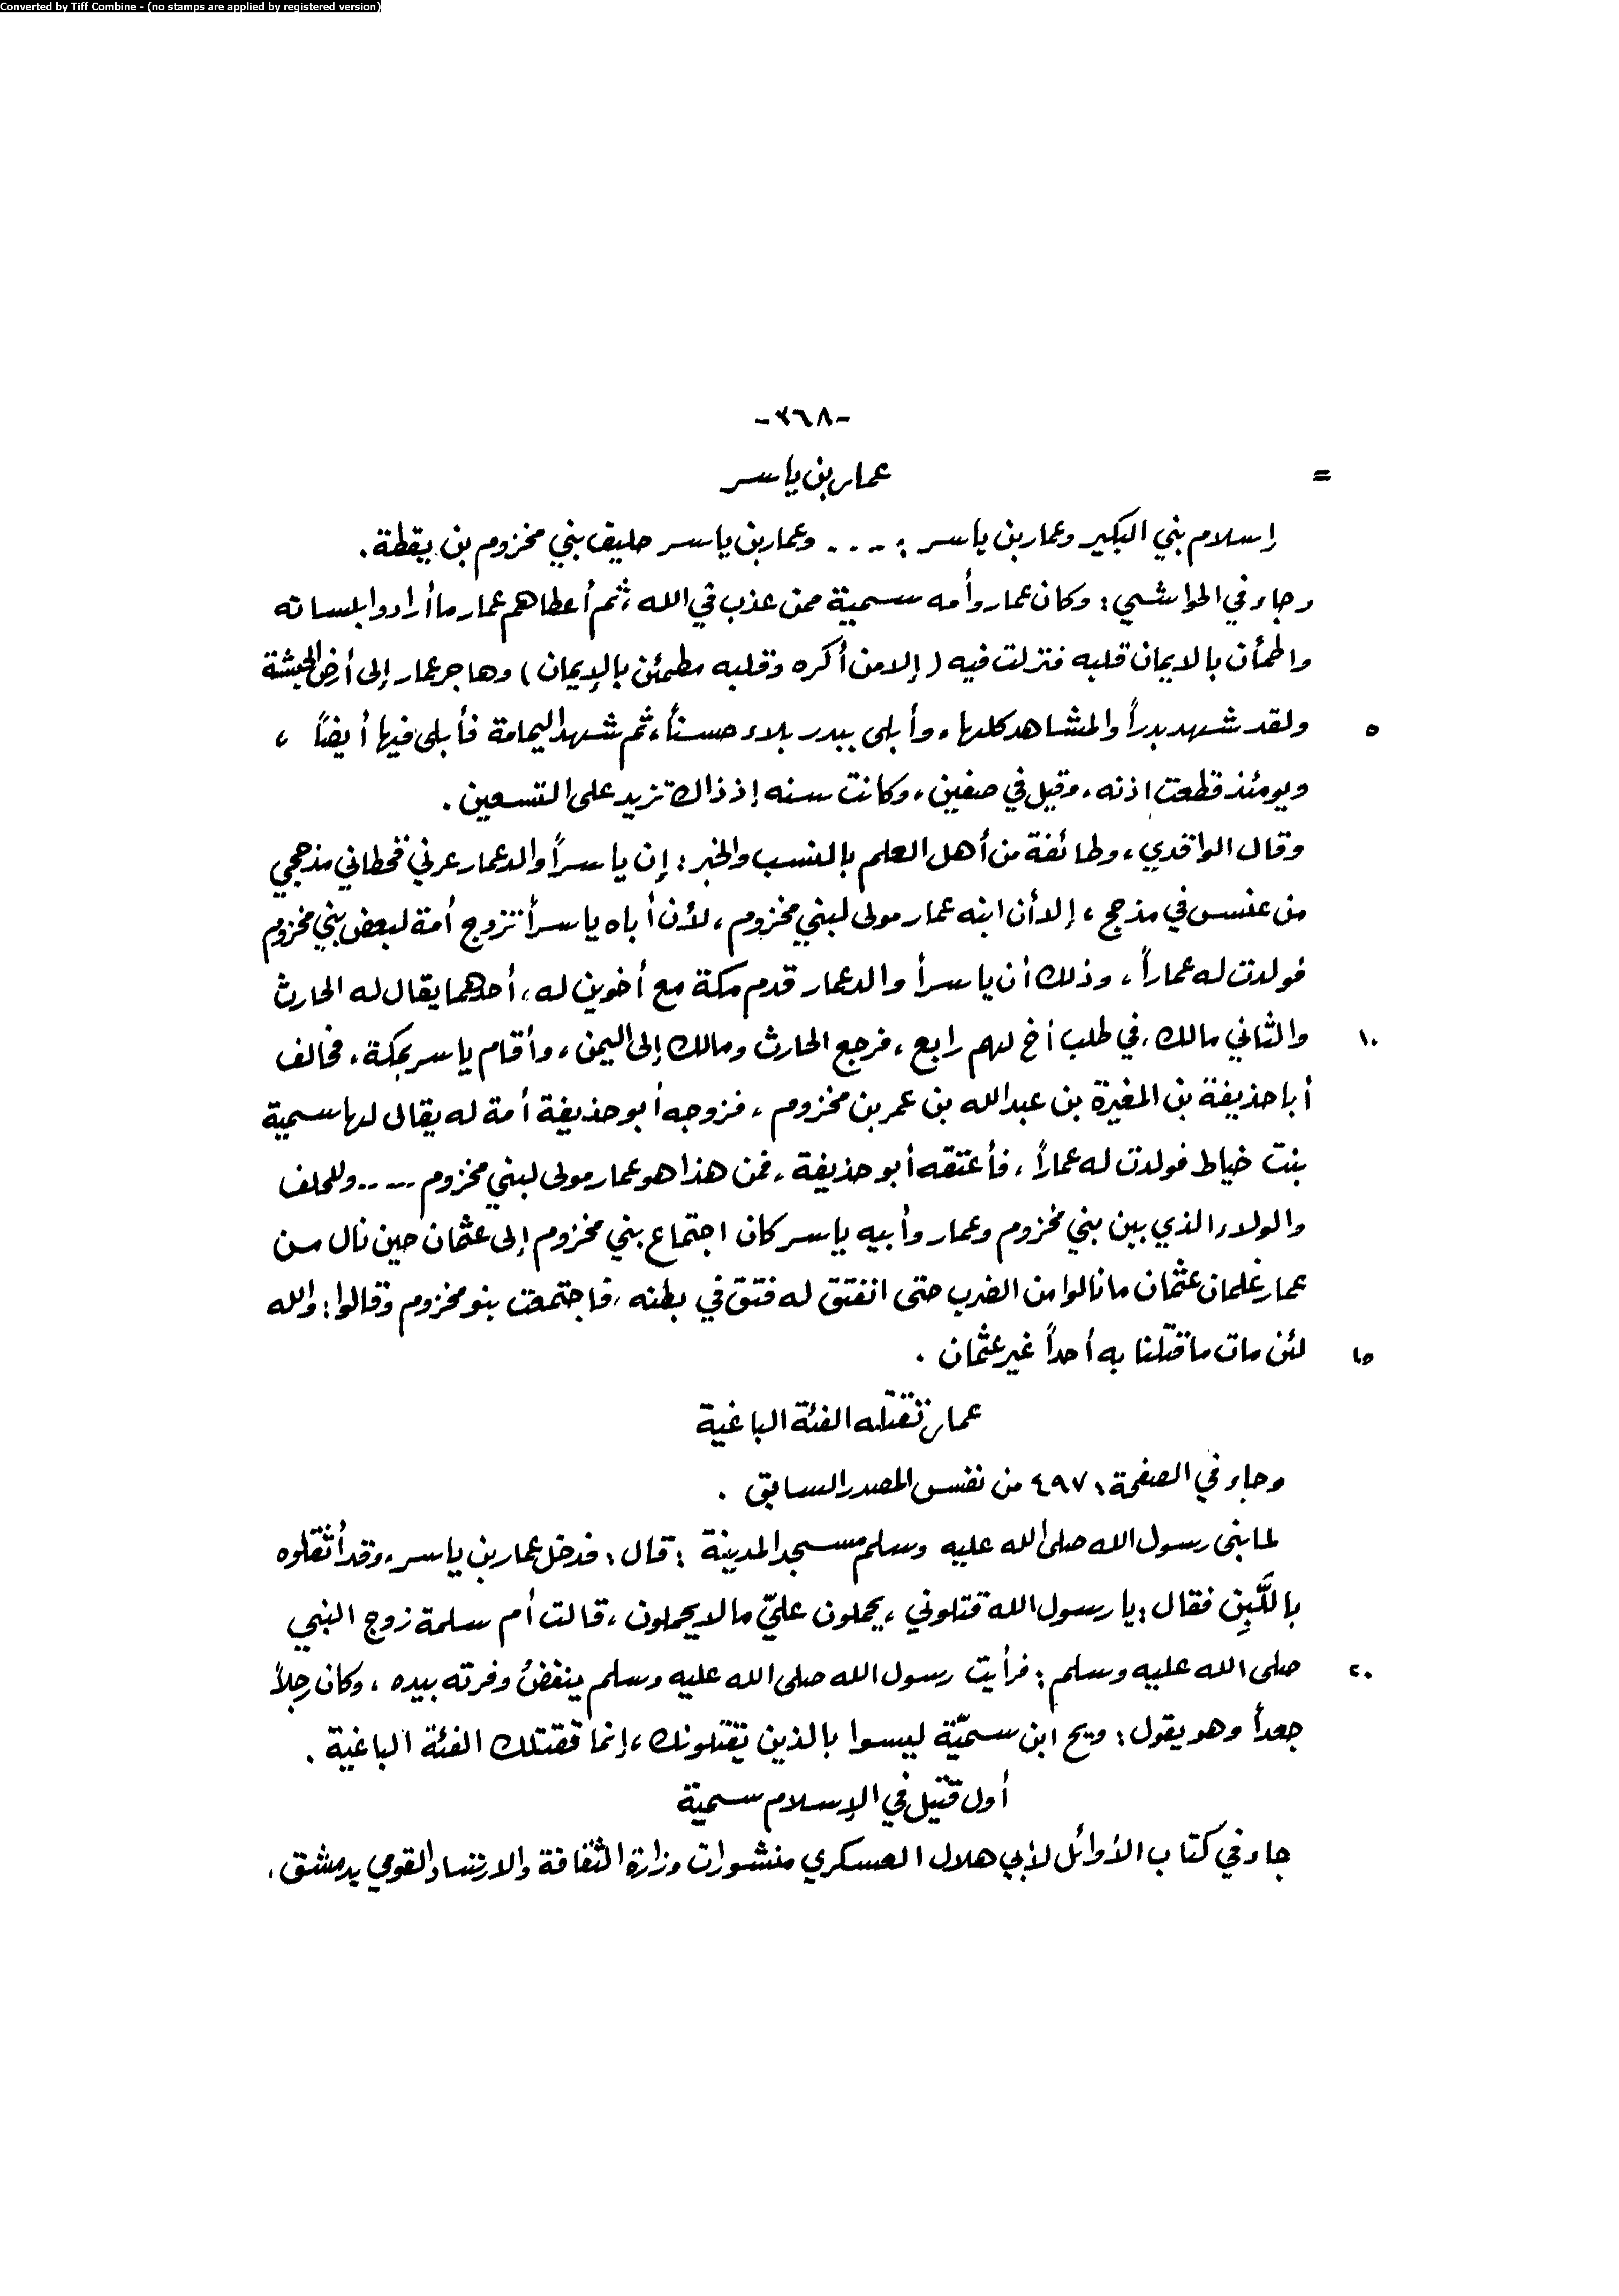 Converted by Tiff Combine - (no stamps are applied by registered version)
-٣٦٨-
= عمار بن ياسر
إسلام بني البكير وعمار بن ياسر : .... وعمار بن ياسر حليف بني مخزوم بن يقظة .
وجاء في الحواشي : وكان عمار وأمه سمية ممن عذب في الله ، ثم أعطاهم عمار ما أرادوا بلسانه
واطمأن بالايمان قلبه فنزلت فيه ( إلا من أكره وقلبه مطمئن بالإيمان ) وهاجر عمار إلى أرض الحبشة
٥ ولقد شهد بدراً والمشاهد كلها ، وأبلى ببدر بلاء حسناً ، ثم شهد اليمامة فأبلى فيها أيضاً ،
ويومئذ قطعت اذنه ، وقيل في صفين ، وكانت سنه إذ ذاك تزيد على التسعين .
وقال الواقدي ، وطائفة من أهل العلم بالنسب والخبر : إن ياسراً والد عمار عرني قحطاني مذحجي
من عنس في مذحج ، إلا أن ابنه عمار مولى لبني مخزوم ، لأن أباه ياسراً تزوج أمة لبعض بني مخزوم
فولدت له عماراً ، وذلك أن ياسراً والد عمار قدم مكة مع أخوين له ، أحدهما يقال له الحارث
١٠ والثاني مالك ، في طلب أخ لهم رابع ، فرجع الحارث ومالك إلى اليمن ، وأقام ياسر بمكة ، فحالف
أبا حذيفة بن المغيرة بن عبدالله بن عمر بن مخزوم ، فزوجه أبو حذيفة أمة له يقال لها سمية
بنت خياط فولدت له عماراً ، فأعتقه أبو حذيفة ، فمن هذا هو عمار مولى لبني مخزوم ..... وللحلف
والولاء الذي بين بني مخزوم وعمار وأبيه ياسر كان اجتماع بني مخزوم إلى عثمان حين نال من
عمار غلمان عثمان ما نالوا من الضرب حتى انفتق له فتق في بطنه ، فاجتمعت بنو مخزوم وقالوا : والله
١٥ لئن مات ما قتلنا به أحداً غير عثمان .
عمار تقتله الفئة الباغية
وجاء في الصفحة : ٤٩٧ من نفس المصدر السابق .
لما بنى رسول الله صلى الله عليه وسلم مسجد المدينة : قال : فدخل عمار بن ياسر ، وقد أثقلوه
باللَّبِن فقال : يا رسول الله قتلوني ، يحملون عليّ ما لا يحملون ، قالت أم سلمة زوج النبي
٢٠ صلى الله عليه وسلم : فرأيت رسول الله صلى الله عليه وسلم ينفضُ وفرته بيده ، وكان رجلاً
جعداً وهو يقول : ويح ابن سميّة ليسوا بالذين يقتلونك ، إنما تقتلك الفئة الباغية .
أول قتيل في الإسلام سمية
جاء في كتاب الأوائل لأبي هلال العسكري منشورات وزارة الثقافة والارشاد القومي بدمشق ،